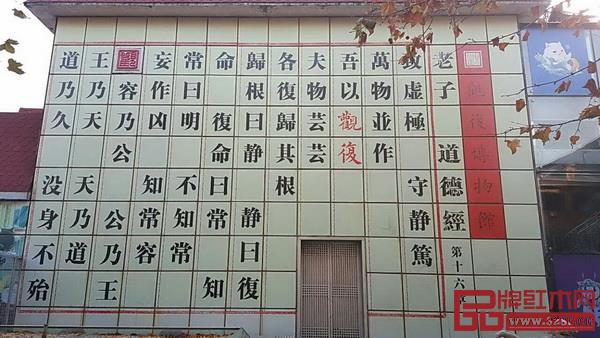 觀復博物館
老子 道德經 第十六
致虛極 守静篤
萬物並作
吾以觀復
夫物芸芸
各復歸其根
歸根曰静 静曰復
命 復命曰常 知
常曰明 不知常
妄作凶 知常容
容乃公 公乃王
王乃天 天乃道
道乃久 没身不殆
品牌红木网
www.328f.